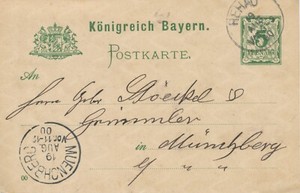 Königreich Bayern.
REHAU
5
POSTKARTE.
An
Herrn Gebr Stöeckel &
Grimmler
in Münchberg
MUENCHBERG
19
AUG
00
Vor.11-12
00